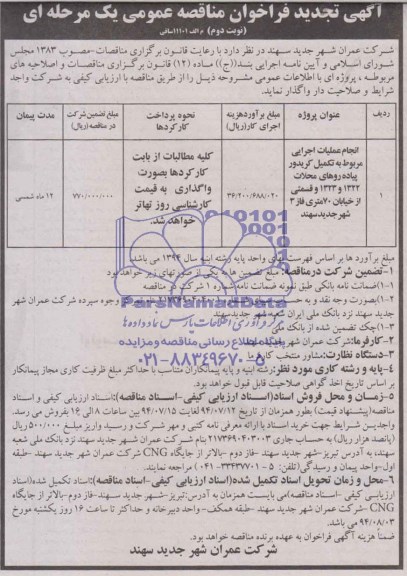 آگهی تجدید فراخوان مناقصه عمومی یک مرحله ای
(نوبت دوم)
شرکت عمران شهر جدید سهند در نظر دارد با رعایت قانون برگزاری مناقصات-مصوب ۱۳۸۳ مجلس
شورای اسلامی و آیین نامه اجرایی بند((ج)) ماده (۱۲) قانون برگزاری مناقصات و اصلاحیه های
مربوطه، پروژه ای با اطلاعات عمومی مشروحه ذیل را از طریق مناقصه با ارزیابی کیفی به شرکت واجد
شرایط و صلاحیت دار واگذار نماید.
ردیف
عنوان پروژه
مبلغ برآوردهزینه اجرای کار(ریال)
نحوه پرداخت کارکردها
مبلغ تضمین شرکت در مناقصه(ریال)
مدت پیمان
۱
انجام عملیات اجرایی
مربوط به تکمیل کریدور
پیاده روهای محلات
۱۳۲۲ و ۱۳۲۳ و قسمتی
از خیابان ۷۰متری فاز ۳
شهر جدیدسهند
۳۶/۲۰۰/۶۸۸/۰۲۰
کلیه مطالبات از بابت
کارکردها بصورت
واگذاری به قیمت
کارشناسی روز تهاتر
خواهد شد.
۷۷۰/۰۰۰/۰۰۰
۱۲ ماه شمسی
مبلغ برآورد ها بر اساس فهرست بهای واحد پایه رشته ابنیه سال ۱۳۹۴ می باشد
۱-تضمین شرکت درمناقصه: مبلغ تضمین ها به یکی از صورتهای زیر خواهد بود
۱-۱)ضمانت نامه بانکی طبق نمونه ضمانت نامه شماره ۱ شرکت در مناقصه
۱-۲)بصورت وجه نقد و به حساب وجوه سپرده شرکت عمران شهر
جدید سهند نزد بانک ملی ایران شعبه شهر جدید سهند
۱-۳)چک تضمین شده از بانک ملی
۲-کارفرما: شرکت عمران شهر جدید سهند
۳-دستگاه نظارت: مشاور منتخب کارفرما
۴-پایه و رشته کاری مورد نظر: رشته ابنیه و پایه پیمانکاران متناسب با حداکثر مبلغ ظرفیت کاری مجاز پیمانکار
بر اساس تاریخ اخذ گواهی صلاحیت قابل قبول خواهد بود.
۵-زمان و محل فروش اسناد(اسناد ارزیابی کیفی -اسناد مناقصه): اسناد ارزیابی کیفی و اسناد
مناقصه(پیشنهاد قیمت) بطور همزمان از تاریخ ۹۴/۰۷/۱۲ لغایت ۹۴/۰۷/۱۵ بین ساعات ۸ الی ۱۶ بفروش می رسد.
واجدین شرایط جهت خرید اسناد با ارائه معرفی نامه کتبی و مهر شرکت و رسید واریز مبلغ ۵۰۰/۰۰۰ ریال
(پانصد هزار ریال) به حساب جاری ۲۱۷۳۶۹۰۴۰۳۰۰۳ بنام شرکت عمران شهر جدید سهند نزد بانک ملی شعبه
سهند، به آدرس تبریز-شهر جدید سهند-فاز دوم-بالاتر از جایگاه CNG شرکت عمران شهر جدید سهند -طبقه
اول-واحد پیمان و رسیدگی(تلفن: ۵ - ۳۳۴۳۷۷۰۱-۰۴۱) مراجعه نمایند.
۶-محل و زمان تحویل اسناد تکمیل شده(اسناد ارزیابی کیفی -اسناد مناقصه): اسناد تکمیل شده(اسناد
ارزیابی کیفی -اسناد مناقصه) می بایست همزمان به آدرس: تبریز-شهر جدید سهند-فاز دوم-بالاتر از جایگاه
CNG-شرکت عمران شهر جدید سهند-طبقه همکف-واحد دبیرخانه و حداکثر تا ساعت ۱۶ روز یکشنبه مورخ
۹۴/۰۸/۰۳ می باشد.
ضمناً هزینه آگهی فراخوان به عهده برنده مناقصه خواهد بود.
شرکت عمران شهر جدید سهند
ParsNamadData
مرکز فرآوری اطلاعات پارس نماد داده ها
پایگاه اطلاع رسانی مناقصه و مزایده
۰۲۱-۸۸۳۴۹۶۷۰-۵